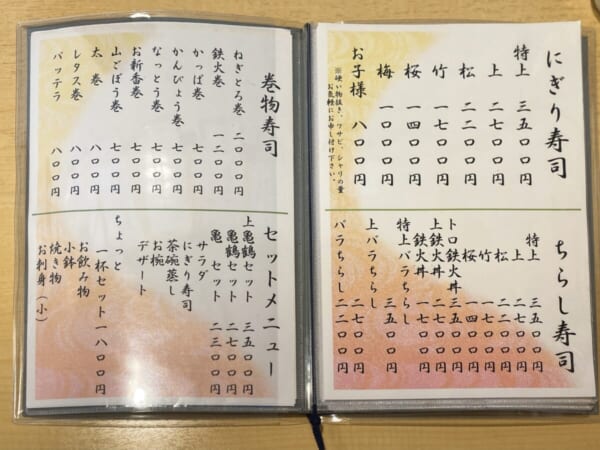 にぎり寿司
特上 三五〇〇円
上 二七〇〇円
松 二二〇〇円
竹 一七〇〇円
桜 一四〇〇円
梅 一〇〇〇円
お子様 八〇〇円
※硬い物抜き、ワサビ、シャリの量
お気軽にお申し付け下さい。
ちらし寿司
特上 三五〇〇円
上 二七〇〇円
松 二二〇〇円
竹 一七〇〇円
桜 一四〇〇円
トロ鉄火丼 三五〇〇円
上鉄火丼 二七〇〇円
鉄火丼 一七〇〇円
特上バラちらし 三五〇〇円
上バラちらし 二七〇〇円
バラちらし 二二〇〇円
巻物寿司
ねぎとろ巻 二〇〇〇円
鉄火巻 一二〇〇円
かっぱ巻 七〇〇円
かんぴょう巻 七〇〇円
なっとう巻 七〇〇円
お新香巻 七〇〇円
山ごぼう巻 七〇〇円
太巻 八〇〇円
レタス巻 八〇〇円
バッテラ 八〇〇円
セットメニュー
上亀鶴セット 三五〇〇円
亀鶴セット 二七〇〇円
亀セット 二三〇〇円
サラダ
にぎり寿司
茶碗蒸し
お椀
デザート
ちょっと
一杯セット 一八〇〇円
お飲み物
小鉢
焼き物
お刺身(小)